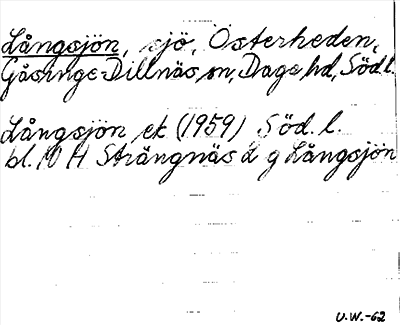 Långsjön, sjö, Österheden,
Gåsinge-Dillnäs sn, Daga hd, Södl.
Långsjön ek (1959) Söd. l.
bl. 10 H Strängnäs 2 g Långsjön
U.W.-62